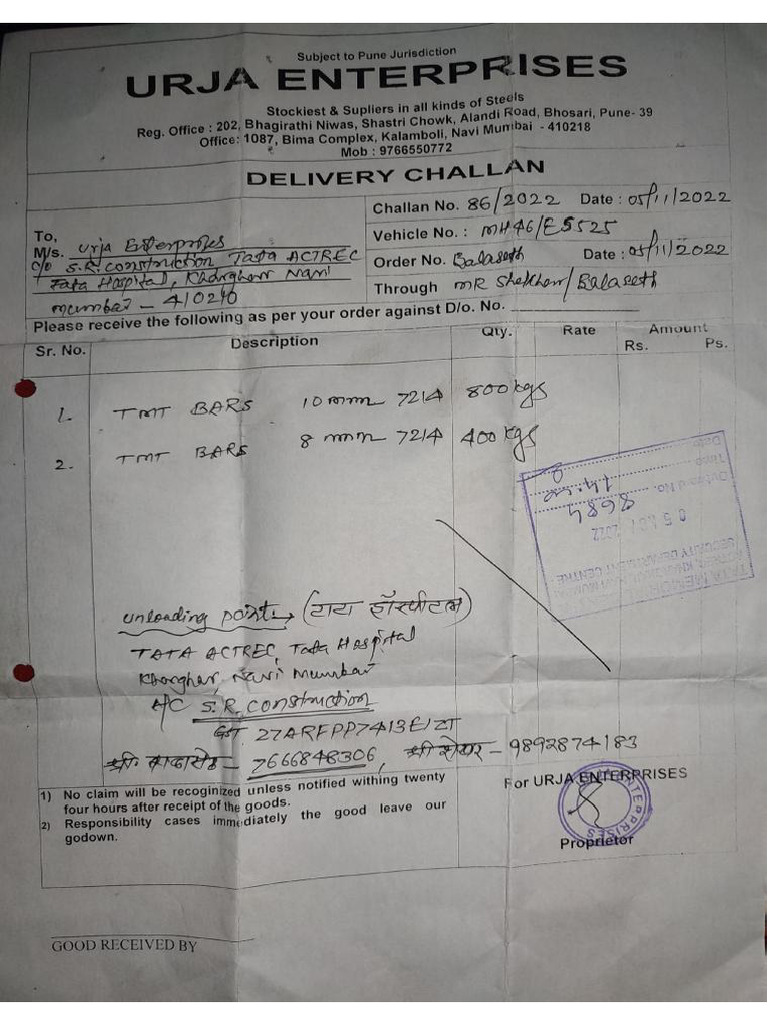 Subject to Pune Jurisdiction
URJA ENTERPRISES
Stockiest & Supliers in all kinds of Steels
Reg. Office : 202, Bhagirathi Niwas, Shastri Chowk, Alandi Road, Bhosari, Pune- 39
Office: 1087, Bima Complex, Kalamboli, Navi Mumbai - 410218
Mob : 9766550772
DELIVERY CHALLAN
To,
M/s. Urja Enterprises
c/o S.R. construction Tata ACTREC
Tata Hospital, Kharghar Navi
mumbai - 410210
Challan No. 86/2022 Date : 05/11/2022
Vehicle No. : MH46/E5525
Order No. Balaseth Date : 05/11/2022
Through MR Shekhar/Balaseth
Please receive the following as per your order against D/o. No.
Sr. No. Description Qty. Rate Amount
Rs. Ps.
1. TMT BARS 10 mm 7214 800 kgs
2. TMT BARS 8 mm 7214 400 kgs
Date
Time 14:
Outward No. 8684
05 2022
SECURITY DEPARTMENT CENTRE
TATA
unloading point → (टाटा हॉस्पीटल)
TATA ACTREC, Tata Hospital
Kharghar, Navi Mumbai
A/C S.R. construction
GST 27ARFPP7413E1ZT
श्री - 7666848306, श्री शेखर - 9892874183
1) No claim will be recoginized unless notified withing twenty
four hours after receipt of the goods.
2) Responsibility cases immediately the good leave our
godown.
For URJA ENTERPRISES
ENTERPRISES
Proprietor
GOOD RECEIVED BY